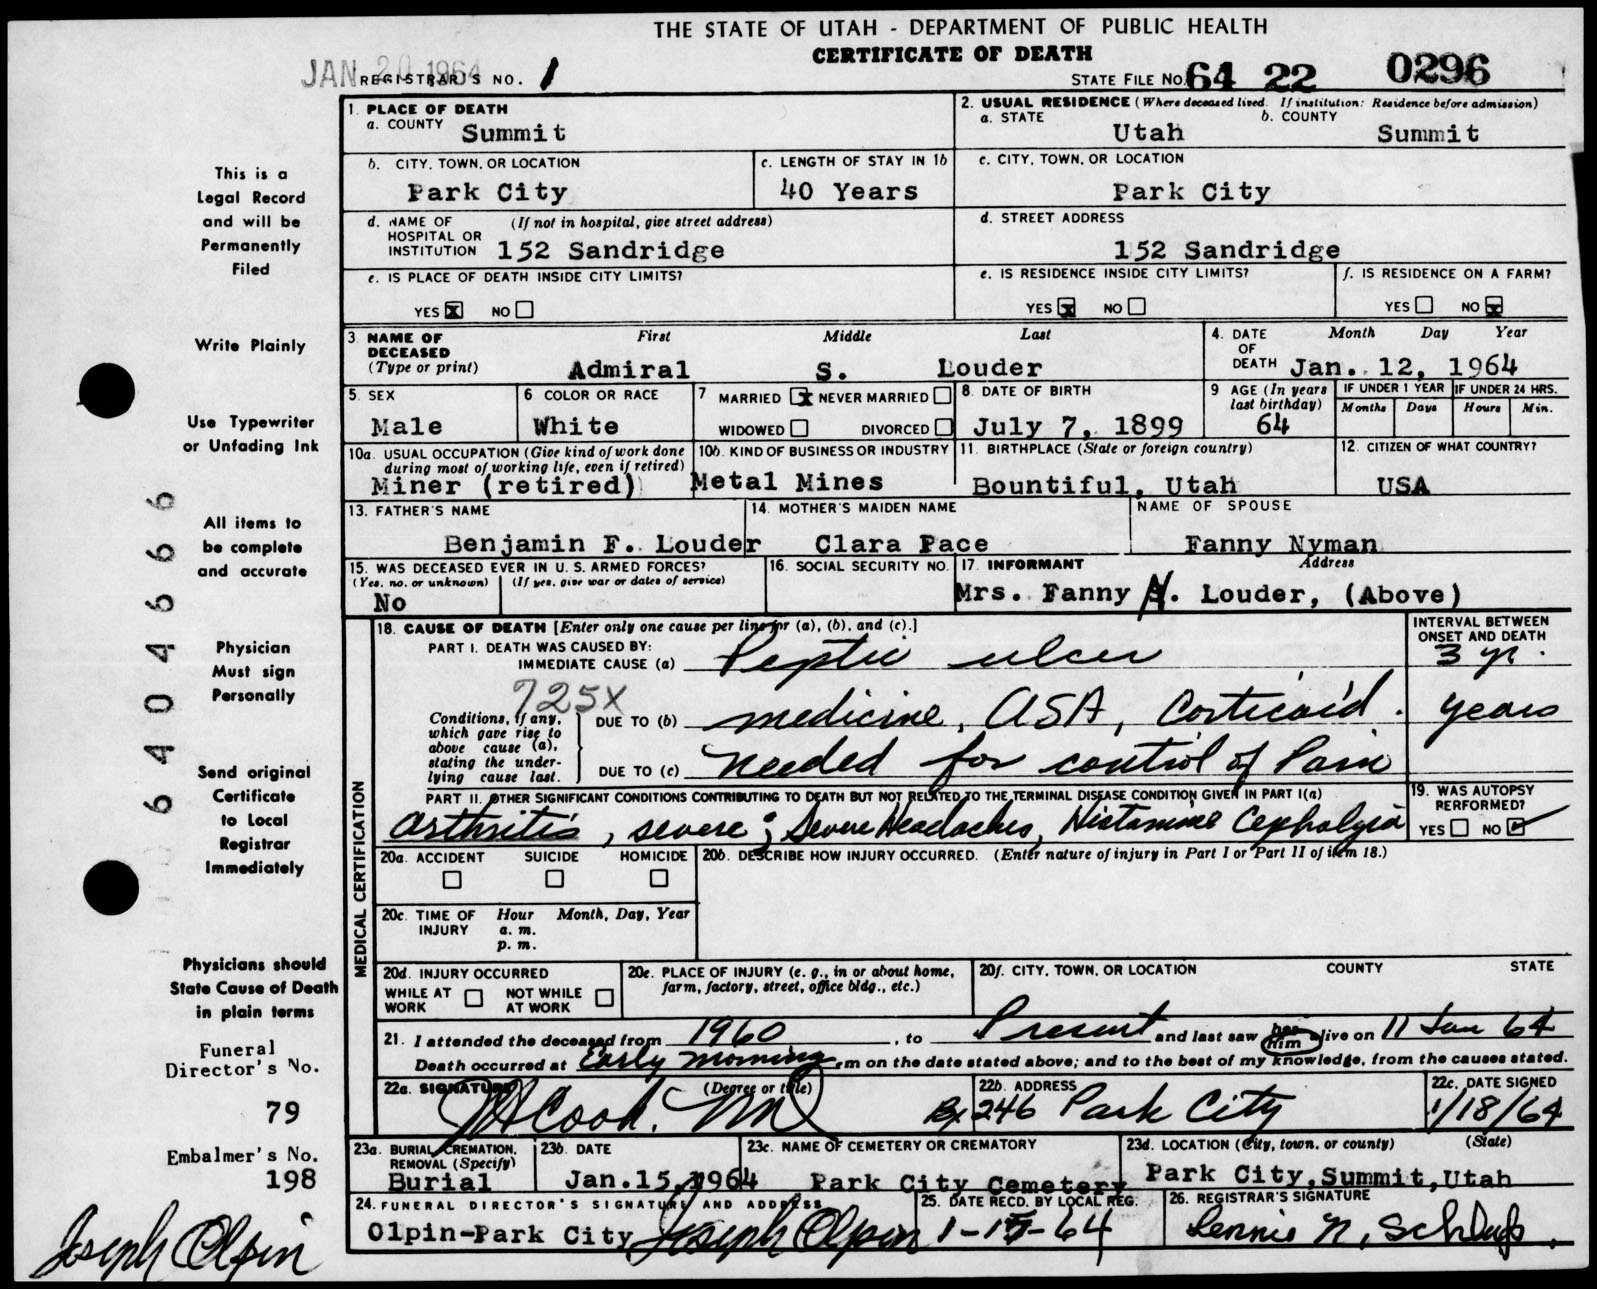 THE STATE OF UTAH - DEPARTMENT OF PUBLIC HEALTH
CERTIFICATE OF DEATH
JAN 20 1964
REGISTRAR'S NO. 1
STATE FILE NO. 64 22 0296
This is a
Legal Record
and will be
Permanently
Filed
Write Plainly
Use Typewriter
or Unfading Ink
All items to
be complete
and accurate
Physician
Must sign
Personally
Send original
Certificate
to Local
Registrar
Immediately
Physicians should
State Cause of Death
in plain terms
Funeral
Director's No.
79
Embalmer's No.
198
Joseph Olpin
6404666
1. PLACE OF DEATH
a. COUNTY Summit
2. USUAL RESIDENCE (Where deceased lived. If institution: Residence before admission)
a. STATE Utah b. COUNTY Summit
b. CITY, TOWN, OR LOCATION
Park City
c. LENGTH OF STAY IN 1b
40 Years
c. CITY, TOWN, OR LOCATION
Park City
d. NAME OF HOSPITAL OR INSTITUTION (If not in hospital, give street address)
152 Sandridge
d. STREET ADDRESS
152 Sandridge
e. IS PLACE OF DEATH INSIDE CITY LIMITS?
YES X NO
e. IS RESIDENCE INSIDE CITY LIMITS?
YES X NO
f. IS RESIDENCE ON A FARM?
YES NO X
3. NAME OF DECEASED (Type or print)
First Middle Last
Admiral S. Louder
4. DATE OF DEATH Month Day Year
Jan. 12, 1964
5. SEX
Male
6 COLOR OR RACE
White
7 MARRIED X NEVER MARRIED
WIDOWED DIVORCED
8. DATE OF BIRTH
July 7, 1899
9 AGE (In years last birthday)
64
IF UNDER 1 YEAR IF UNDER 24 HRS.
Months Days Hours Min.
10a. USUAL OCCUPATION (Give kind of work done during most of working life, even if retired)
Miner (retired)
10b. KIND OF BUSINESS OR INDUSTRY
Metal Mines
11. BIRTHPLACE (State or foreign country)
Bountiful, Utah
12. CITIZEN OF WHAT COUNTRY?
USA
13. FATHER'S NAME
Benjamin F. Louder
14. MOTHER'S MAIDEN NAME
Clara Pace
NAME OF SPOUSE
Fanny Nyman
15. WAS DECEASED EVER IN U.S. ARMED FORCES?
(Yes, no, or unknown) (If yes, give war or dates of service)
No
16. SOCIAL SECURITY NO.
17. INFORMANT Address
Mrs. Fanny N. Louder, (Above)
MEDICAL CERTIFICATION
18. CAUSE OF DEATH [Enter only one cause per line for (a), (b), and (c).]
INTERVAL BETWEEN ONSET AND DEATH
PART I. DEATH WAS CAUSED BY:
IMMEDIATE CAUSE (a) Peptic ulcer 3 yr.
725X
Conditions, if any, which gave rise to above cause (a), stating the underlying cause last.
DUE TO (b) medicine, ASA, Corticoid. years
DUE TO (c) needed for control of Pain
PART II. OTHER SIGNIFICANT CONDITIONS CONTRIBUTING TO DEATH BUT NOT RELATED TO THE TERMINAL DISEASE CONDITION GIVEN IN PART I(a)
Arthritis, severe; Severe Headaches, Histamine Cephalgia
19. WAS AUTOPSY PERFORMED?
YES NO ✓
20a. ACCIDENT SUICIDE HOMICIDE
20b. DESCRIBE HOW INJURY OCCURRED. (Enter nature of injury in Part I or Part II of item 18.)
20c. TIME OF INJURY Hour Month, Day, Year
a. m.
p. m.
20d. INJURY OCCURRED
WHILE AT WORK NOT WHILE AT WORK
20e. PLACE OF INJURY (e. g., in or about home, farm, factory, street, office bldg., etc.)
20f. CITY, TOWN, OR LOCATION COUNTY STATE
21. I attended the deceased from 1960, to Present and last saw her him alive on 11 Jan 64
Death occurred at Early morning, m on the date stated above; and to the best of my knowledge, from the causes stated.
22a. SIGNATURE (Degree or title)
Cook. MD
22b. ADDRESS
Bx 246 Park City
22c. DATE SIGNED
1/18/64
23a. BURIAL, CREMATION, REMOVAL (Specify)
Burial
23b. DATE
Jan. 15, 1964
23c. NAME OF CEMETERY OR CREMATORY
Park City Cemetery
23d. LOCATION (City, town, or county) (State)
Park City, Summit, Utah
24. FUNERAL DIRECTOR'S SIGNATURE AND ADDRESS
Olpin-Park City, Joseph Olpin
25. DATE RECD. BY LOCAL REG.
26. REGISTRAR'S SIGNATURE